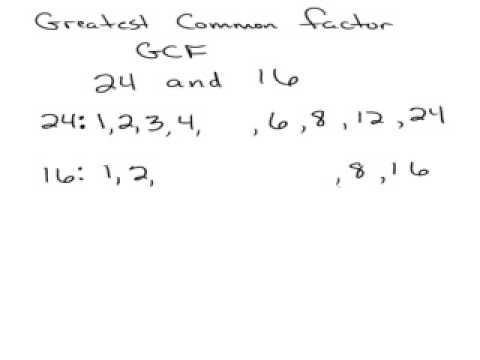 Greatest Common factor
GCF
24 and 16
24: 1, 2, 3, 4, , 6, 8, 12, 24
16: 1, 2, , 8, 16